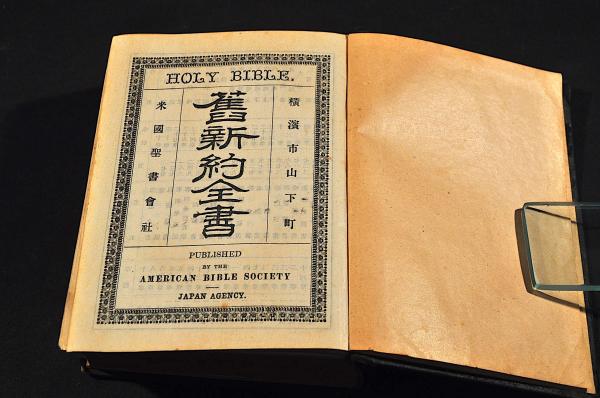 HOLY BIBLE.
横濱市山下町
舊新約全書
米國聖書會社
PUBLISHED
BY THE
AMERICAN BIBLE SOCIETY
JAPAN AGENCY.